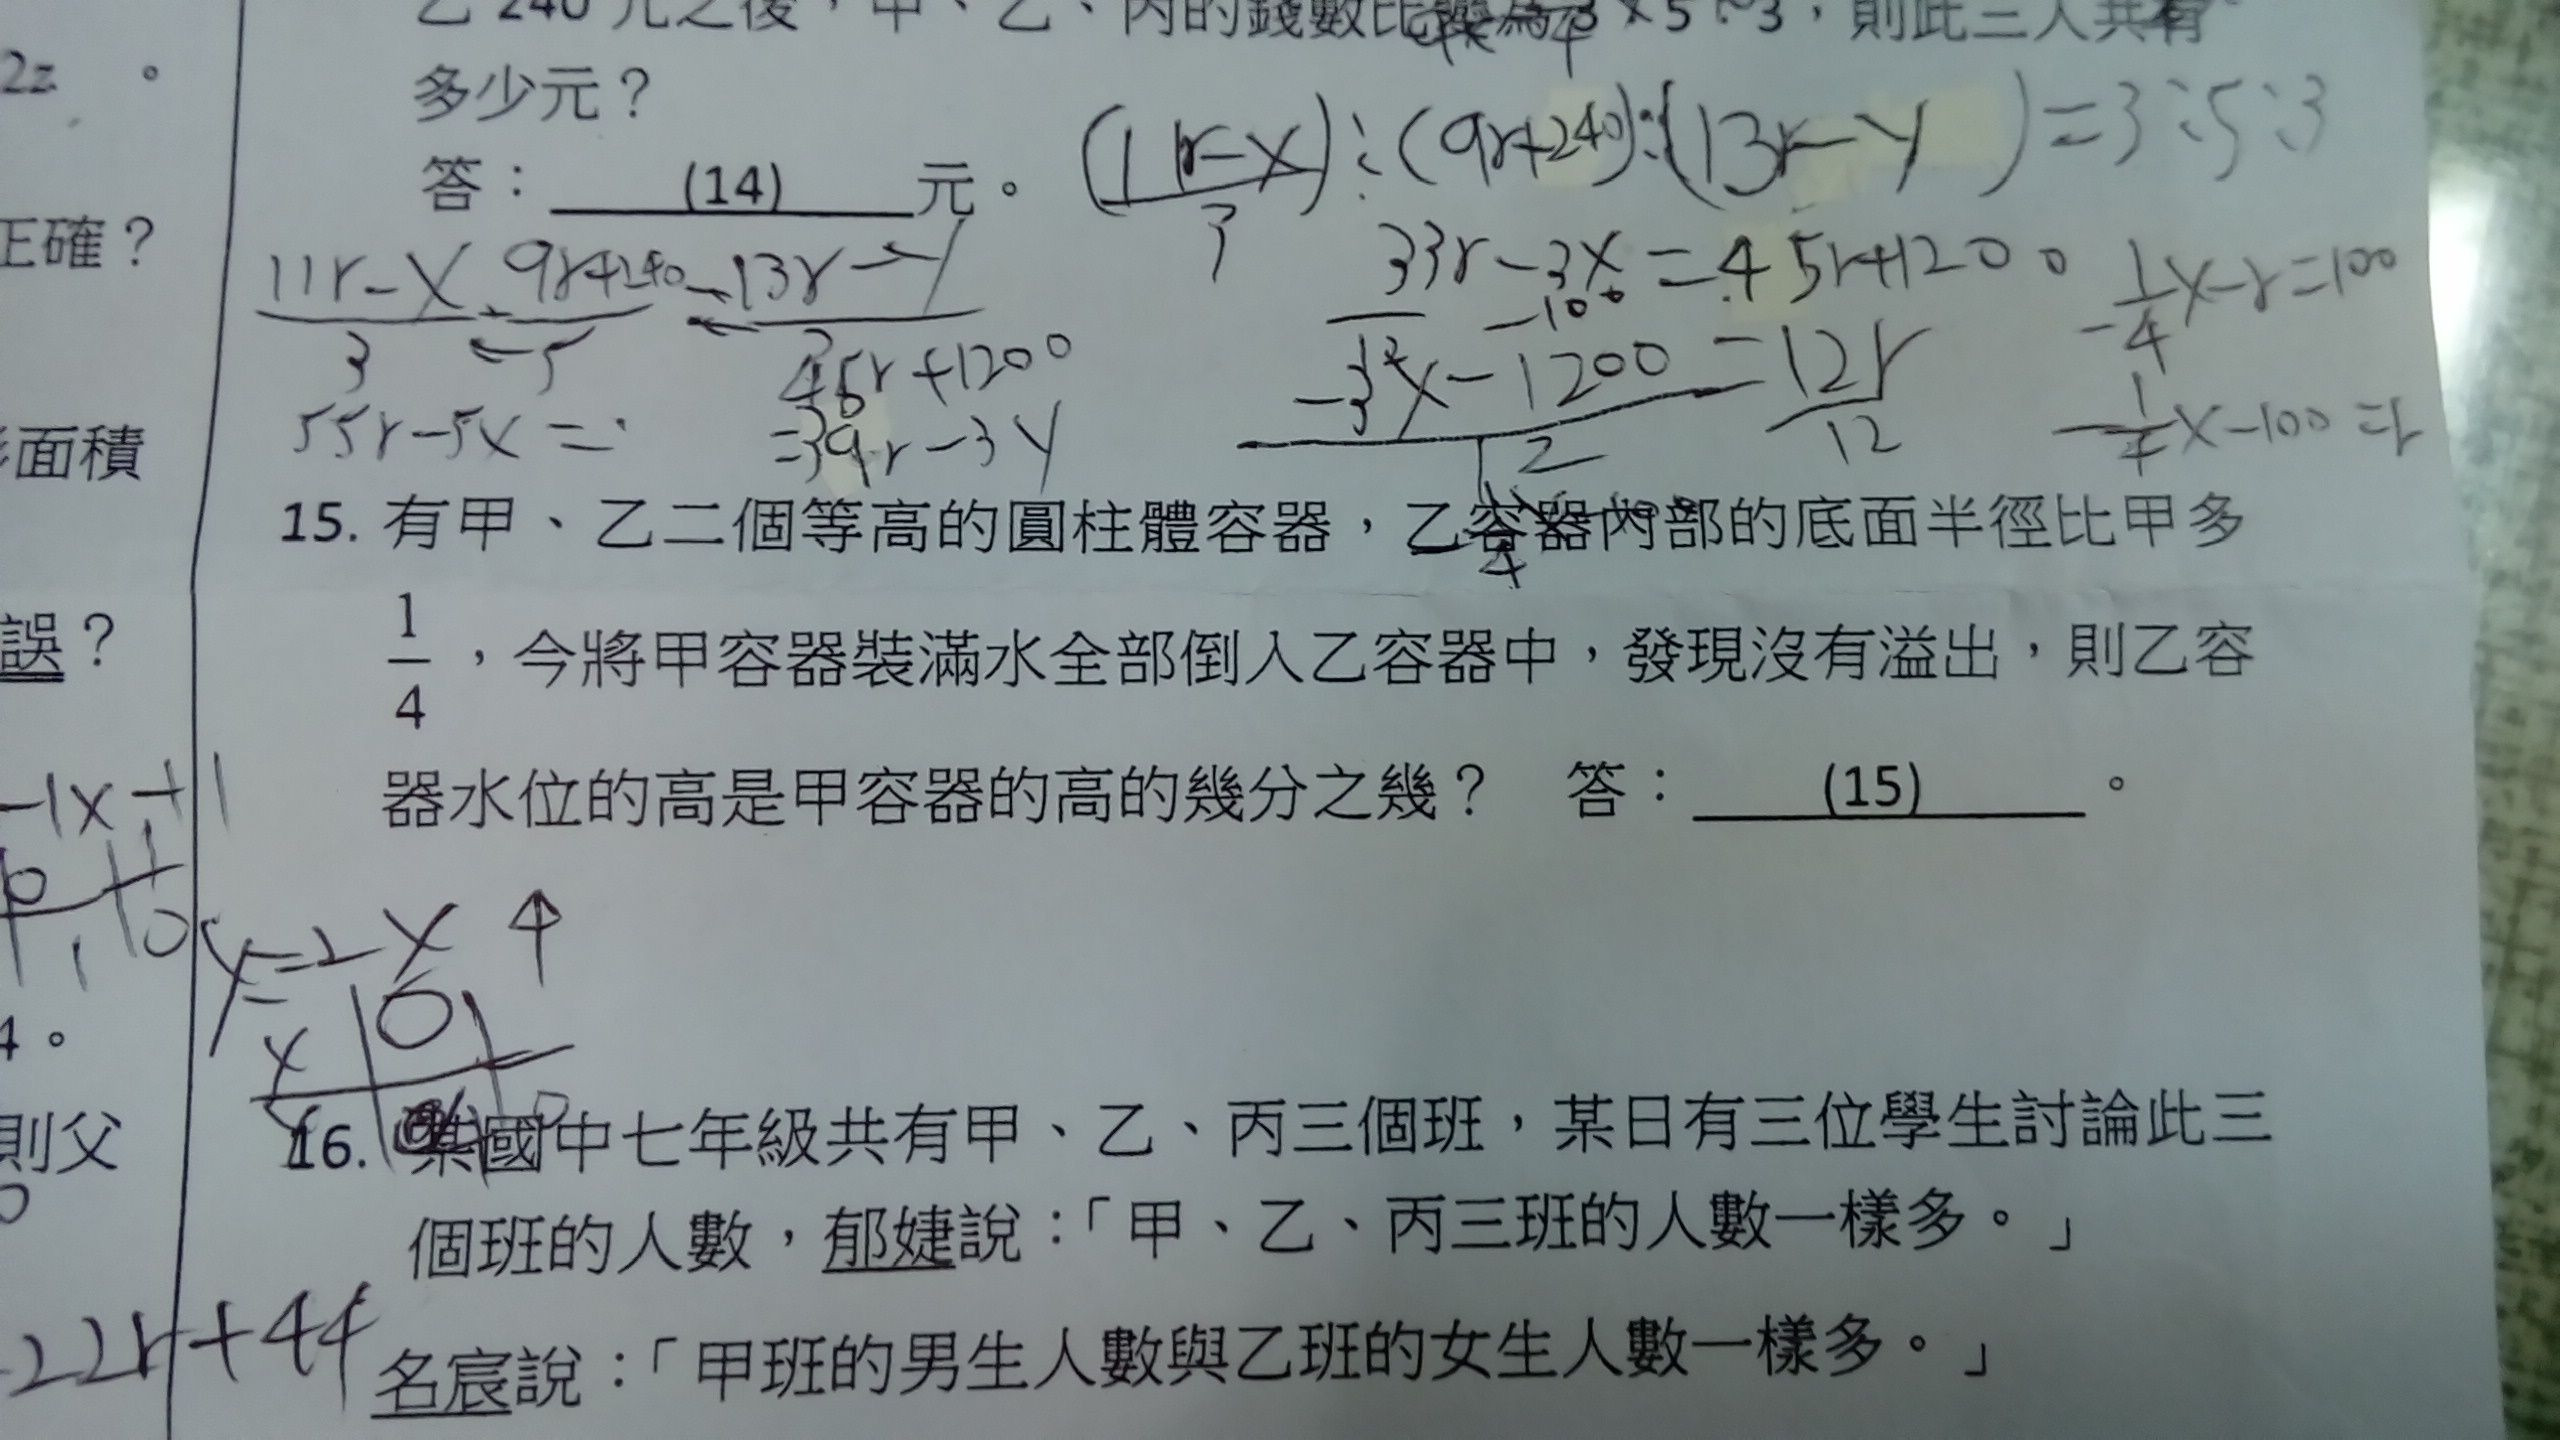 乙 240 元之後，甲、乙、丙的錢數比變為 3：5：3，則此三人共有
多少元？
答：(14)元。
(11r-x):(9r+240):(13r-y)=3:5:3
33r-3x=45r+1200
-3x-1200=12r
55r-5x=
45r+1200
=39r-3y
15. 有甲、乙二個等高的圓柱體容器，乙容器內部的底面半徑比甲多
1/4，今將甲容器裝滿水全部倒入乙容器中，發現沒有溢出，則乙容
器水位的高是甲容器的高的幾分之幾？ 答：(15)。
y=2x
16. 某國中七年級共有甲、乙、丙三個班，某日有三位學生討論此三
個班的人數，郁婕說：「甲、乙、丙三班的人數一樣多。」
名宸說：「甲班的男生人數與乙班的女生人數一樣多。」
2z 。
正確？
面積
誤？
-1x+1
4。
則父
22r+44